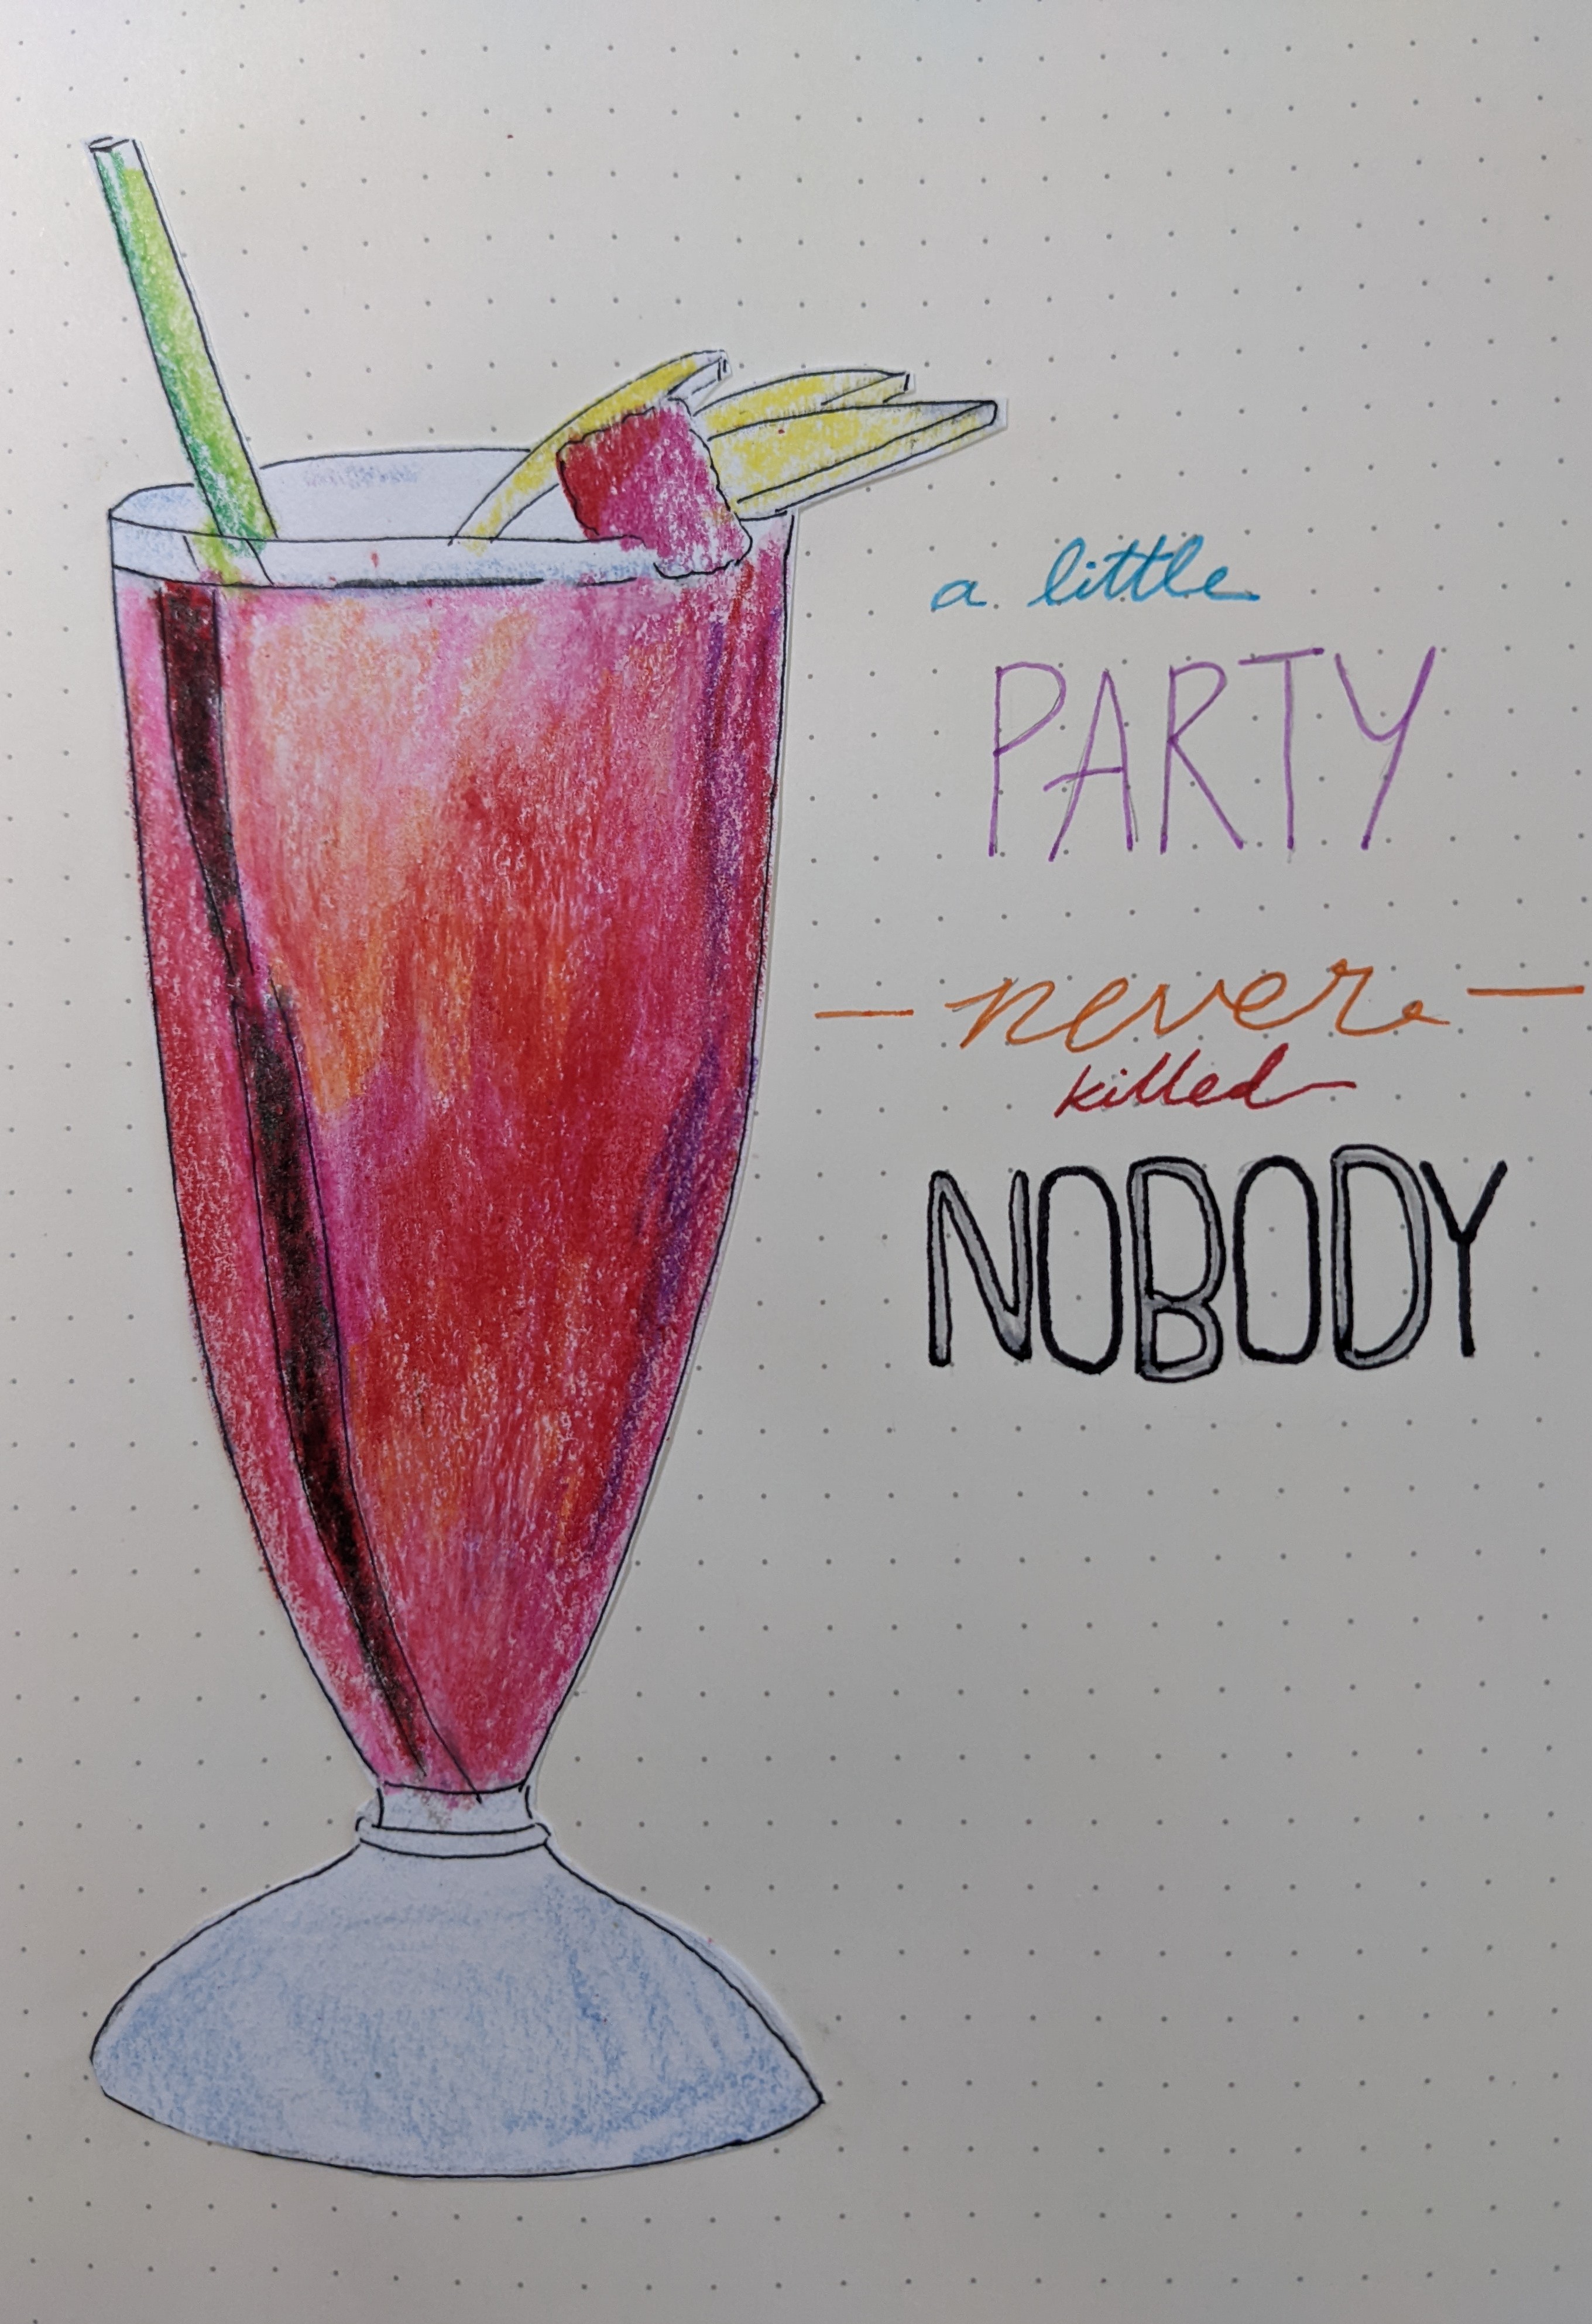 a little
PARTY
— never —
killed
NOBODY